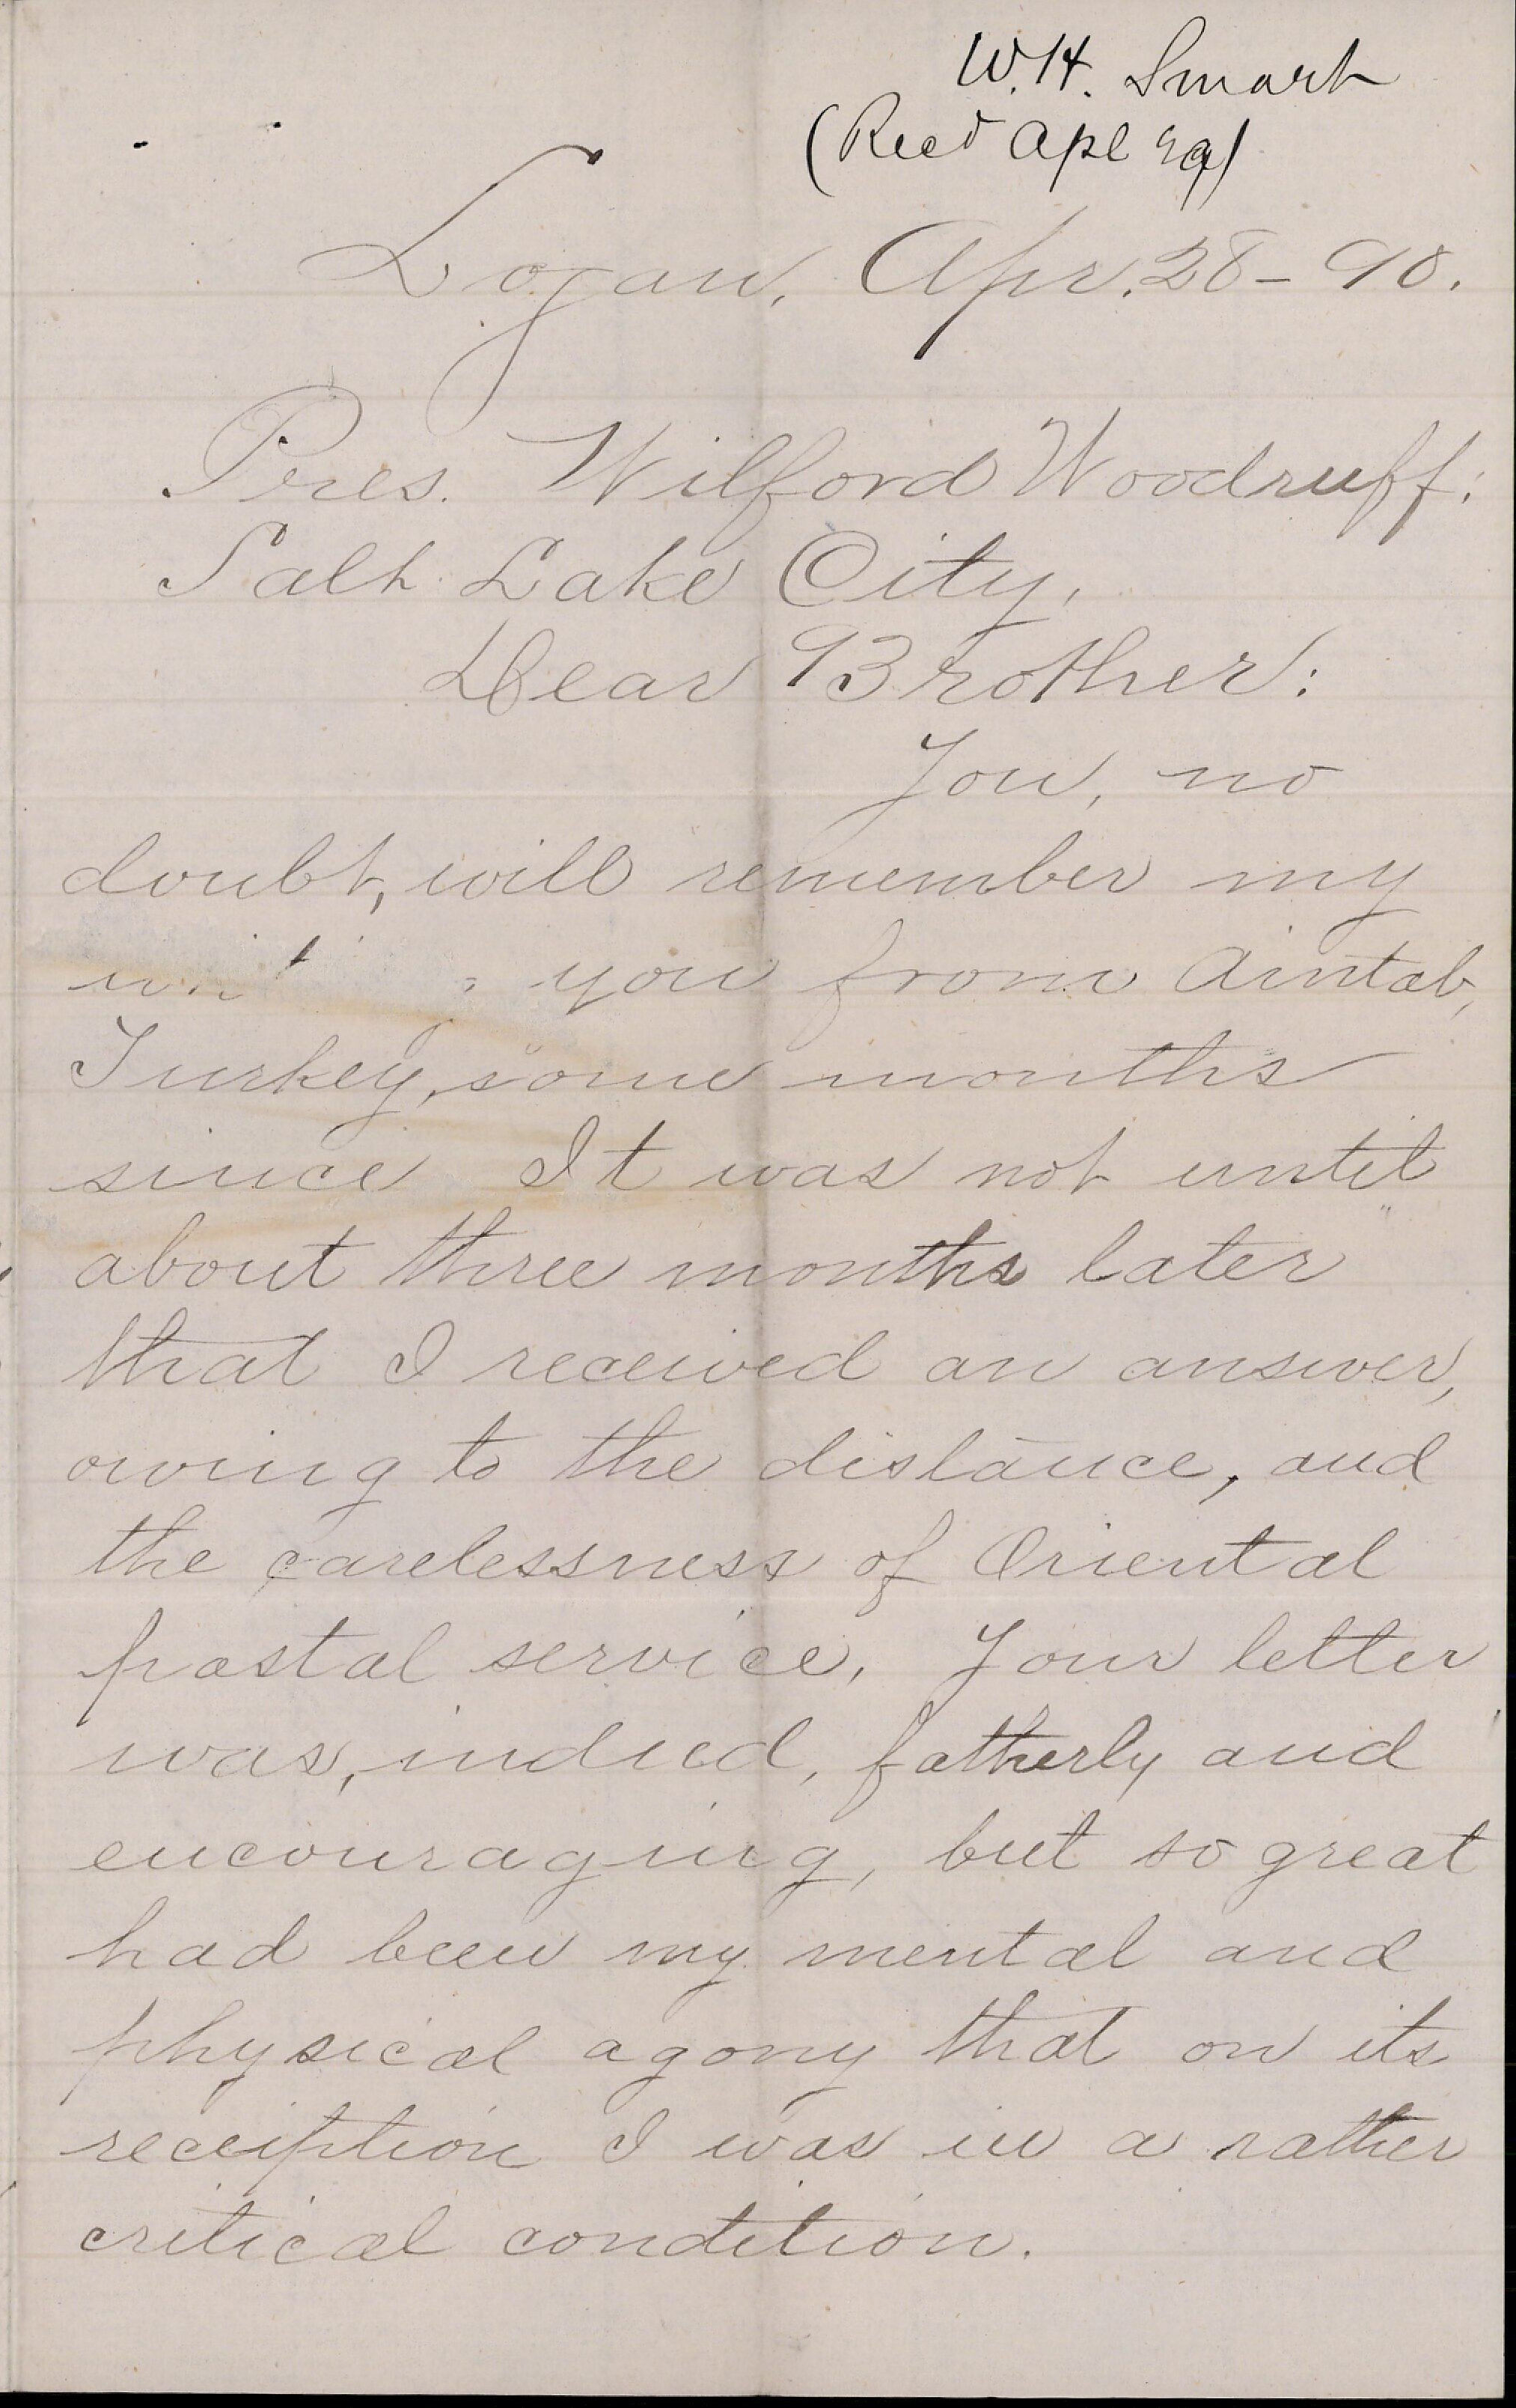 W. H. Smart
(Recd Apl 29)
Logan, Apr. 28 - 90.
Pres. Wilford Woodruff:
Salt Lake City,
Dear Brother:
You, no
doubt, will remember my
you from Aintab,
Turkey, some months
since It was not until
about three months later
that I received an answer,
owing to the distance, and
the carelessness of Oriental
postal service. Your letter
was, indeed, fatherly and
encouraging, but so great
had been my mental and
physical agony that on its
receiption I was in a rather
critical condition.